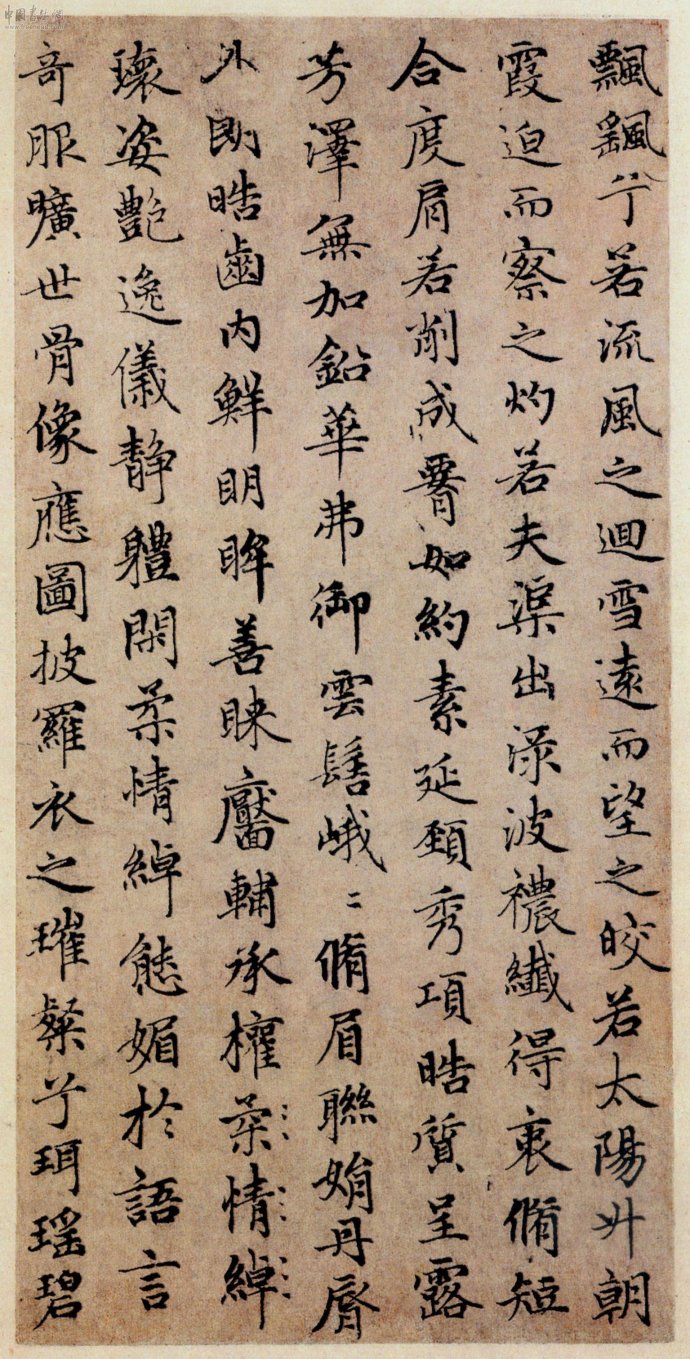 飄飖兮若流風之迴雪遠而望之皎若太陽升朝
霞迫而察之灼若夫渠出渌波襛纖得衷脩短
合度肩若削成署如約素延頸秀項晧質呈露
芳澤無加鉛華弗御雲髻峨〻脩眉聯娟丹脣
外朗晧齒内鮮明眸善睞靨輔承權柔情綽
瓌姿艷逸儀静體閑柔情綽態媚於語言
奇服曠世骨像應圖披羅衣之璀粲兮珥瑶碧
中國書法網